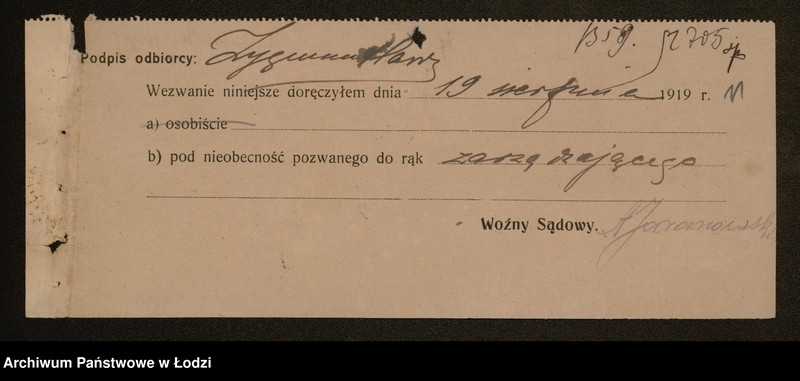 1359.
Podpis odbiorcy: Zygmunt
Wezwanie niniejsze doręczyłem dnia 19 sierpnia 1919 r.
a) osobiście
b) pod nieobecność pozwanego do rąk zarządzającego
Woźny Sądowy.
Archiwum Państwowe w Łodzi